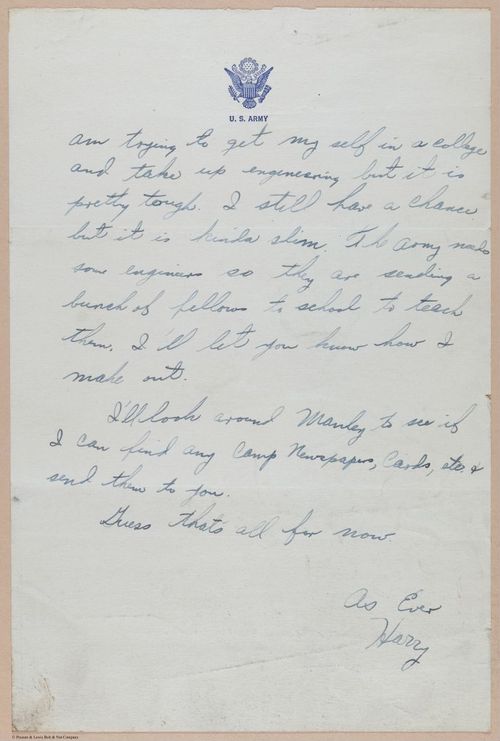 U. S. ARMY
am trying to get my self in a college
and take up engineering but it is
pretty tough. I still have a chance
but it is kinda slim. The army needs
some engineers so they are sending a
bunch of fellows to school to teach
them. I'll let you know how I
make out.
I'll look around Manley to see if
I can find any Camp Newspapers, Cards, etc, &
send them to you.
Guess thats all for now
As Ever
Harry
© Penson & Lewis Bolt & Nut Company